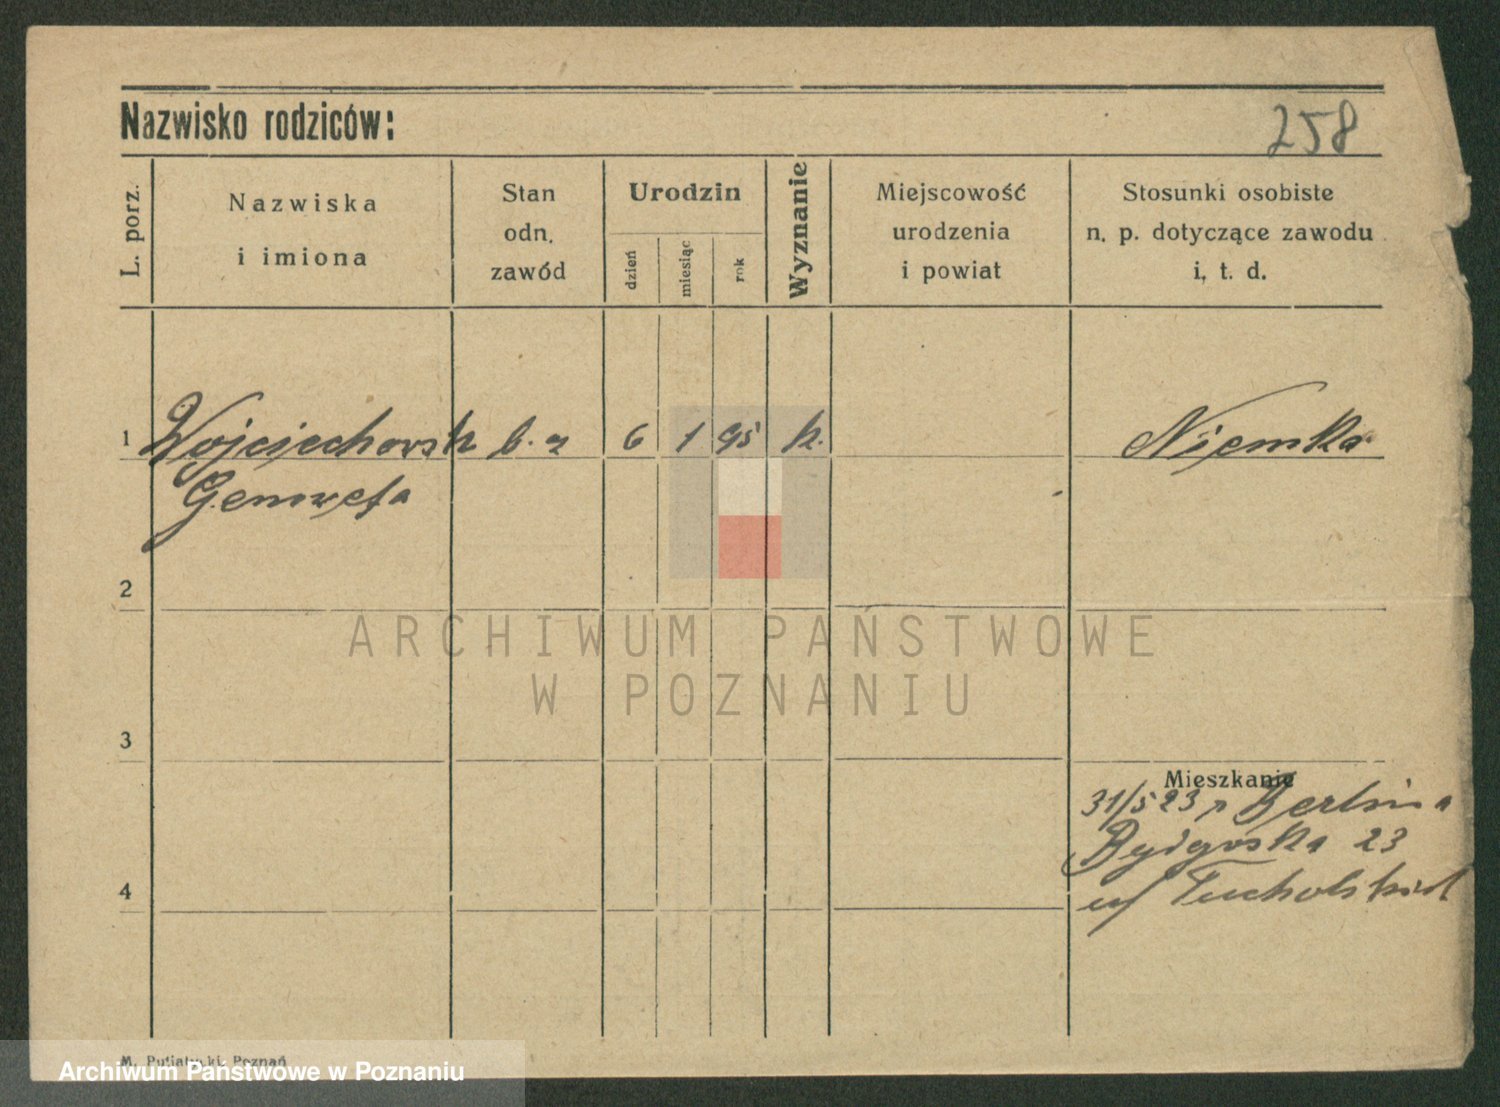 Nazwisko rodziców:
258
L. porz.
Nazwiska
i imiona
Stan
odn.
zawód
Urodzin
dzień
miesiąc
rok
Wyznanie
Miejscowość
urodzenia
i powiat
Stosunki osobiste
n. p. dotyczące zawodu
i. t. d.
1 Wojciechowsk b. z 6 1 95 k. Niemka
Genowefa
2
ARCHIWUM PAŃSTWOWE
W POZNANIU
3
Mieszkanie
31/5 23 Berlina
Bydgoska 23
u/ Tucholskich
4
M. Putiatycki, Poznań
Archiwum Państwowe w Poznaniu